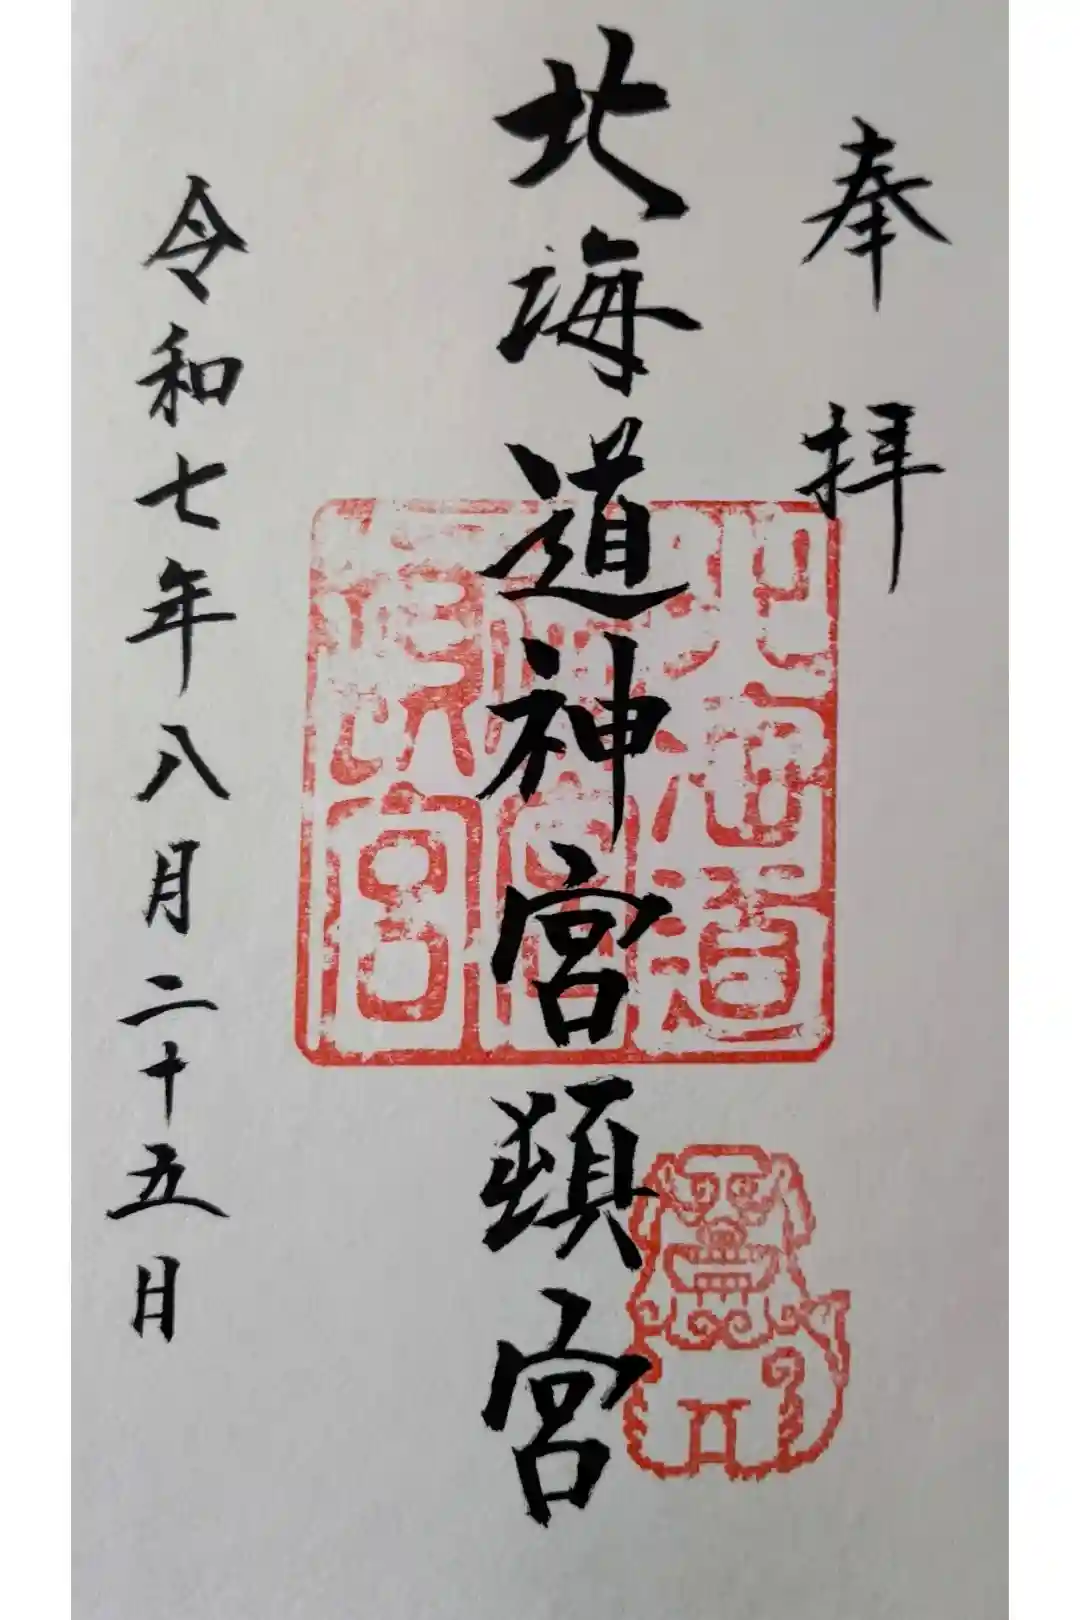 奉拝
北海道神宮頓宮
令和七年八月二十五日
北海道
神宮
頓宮